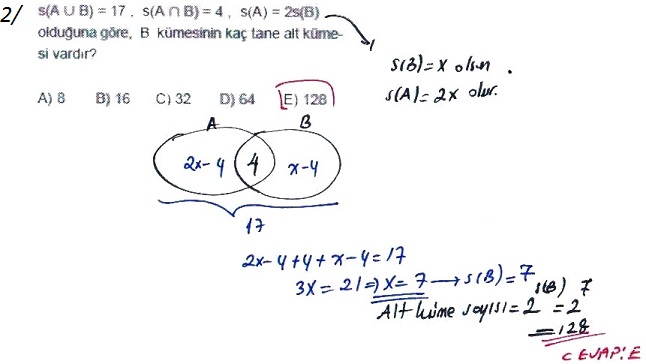 2/ s(A ∪ B) = 17 , s(A ∩ B) = 4 , s(A) = 2s(B)
olduğuna göre, B kümesinin kaç tane alt küme-
si vardır?
s(B)=x olsun .
s(A)=2x olur.
A) 8 B) 16 C) 32 D) 64 E) 128
A B
2x-4 4 x-4
17
2x-4+4+x-4=17
3x=21⇒x=7→s(B)=7
Alt küme sayısı=2^s(B)=2^7
=128
CEVAP:E